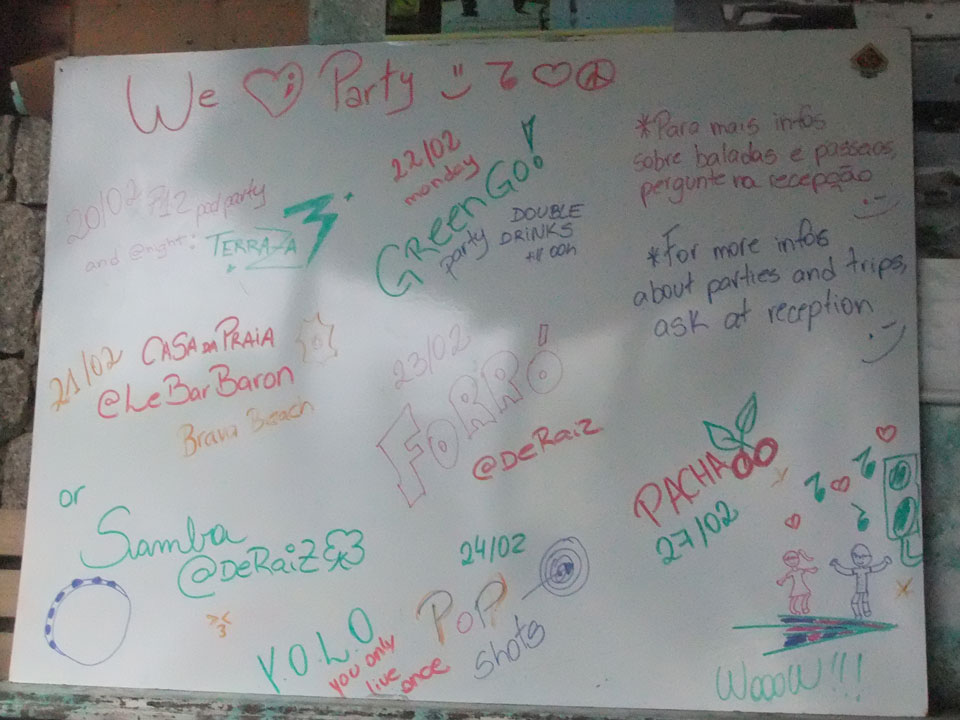 We Party
20/02 712 pod party
and @night: TERRAZA
22/02
monday
GREEN GO!
party DOUBLE
DRINKS
till 00h
*Para mais infos
sobre baladas e passeos,
pergunte na recepção
*For more infos
about parties and trips,
ask at reception
21/02 CASA DA PRAIA
@LeBarBaron
Brava Beach
or
Samba
@DeRaiZ
23/02
FoRRó!
@DeRaiz
24/02
PoP
shots
Y.O.L.O
you only
live once
PACHA
27/02
WoooW!!!